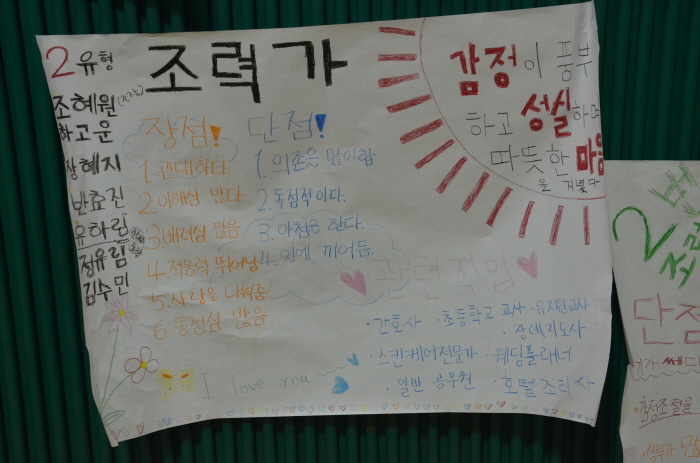 2유형
조력가
조혜원
하고운
장혜지
반효진
유하림
정유림
김수민
장점!
1. 관대하다
2 이해심 많다
3 배려심 많음
4. 적응력 뛰어남
5. 사랑을 나눠줌
6. 동정심 많음
단점!
1. 의존을 많이함
2. 독점적이다.
3. 아첨을 한다.
4. 일에 끼어듬.
감정이 풍부
하고 성실하며
따뜻한 마음
을 지녔다
관련직업
·간호사 ·초등학교 교사 ·유치원교사
·장례지도사
·스킨케어전문가 ·웨딩플래너
·일반 공무원 ·호텔조리사
I love you
2
단점
·감정조절을